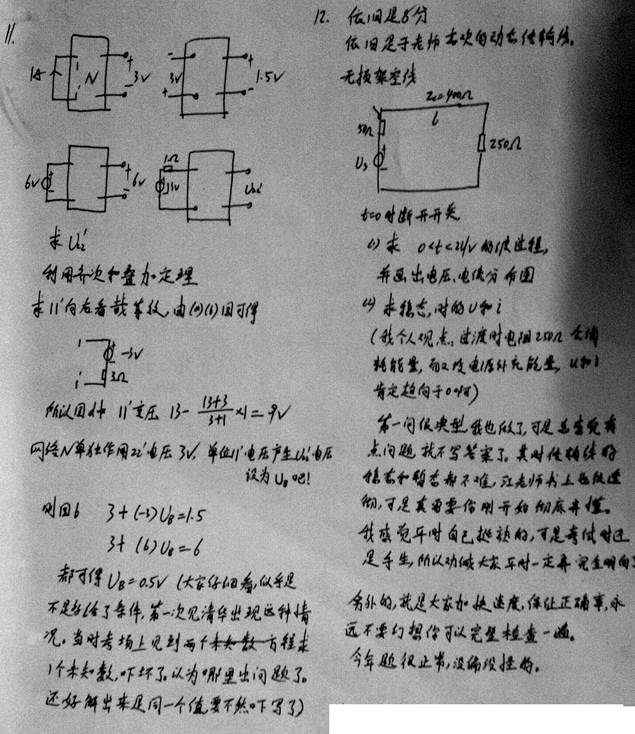 11.
1A
N
3V
3V
1.5V
6V
6V
1Ω
13V
求 U22'
利用齐次和叠加定理
求11'向右看戴等效,由(a)(b)图可得
-3V
3Ω
所以图d中 11'电压 13 - (13+3)/(3+1) ×1 = 9V
网络N单独作用22'电压3V, 单位11'电压产生22'电压
设为 UB 吧!
则图b 3+(-3)UB=1.5
3+(6)UB=6
都可得 UB=0.5V (大家仔细看,似乎是
不是多给了条件,第一次见清华出现这种情
况,当时考场上见到两个方程求
1个未知数,吓坏了,以为哪里出问题了。
还好解出来是同一个值,要不然吓写了)
12. 依旧是8分
依旧是于老师
无损架空线
Zc=400Ω
l
50Ω
Us
250Ω
t=0时断开开关
(1) 求 0<t<2l/v 的波过程,
并画出电压、电流分布图
(2) 求稳态,时的U和i
(我个人观点,过渡时电阻250Ω会消
耗能量,而又没电源补充能量,u和i
肯定趋向于0啊)
第一问很典型,我也做了,可是总感觉有
点问题就不写答案了。其时传输线的
稳态和暂态都不难,江老师书上也很透
彻,可是真需要你刚开始彻底弄懂。
我感觉平时自己挺熟的,可是考试时还
是手生,所以劝诫大家平时一定弄完全明白
另外的,就是大家加快速度,保证正确率,永
远不要幻想你可以完整检查一遍。
今年题很正常,没偏没怪的。